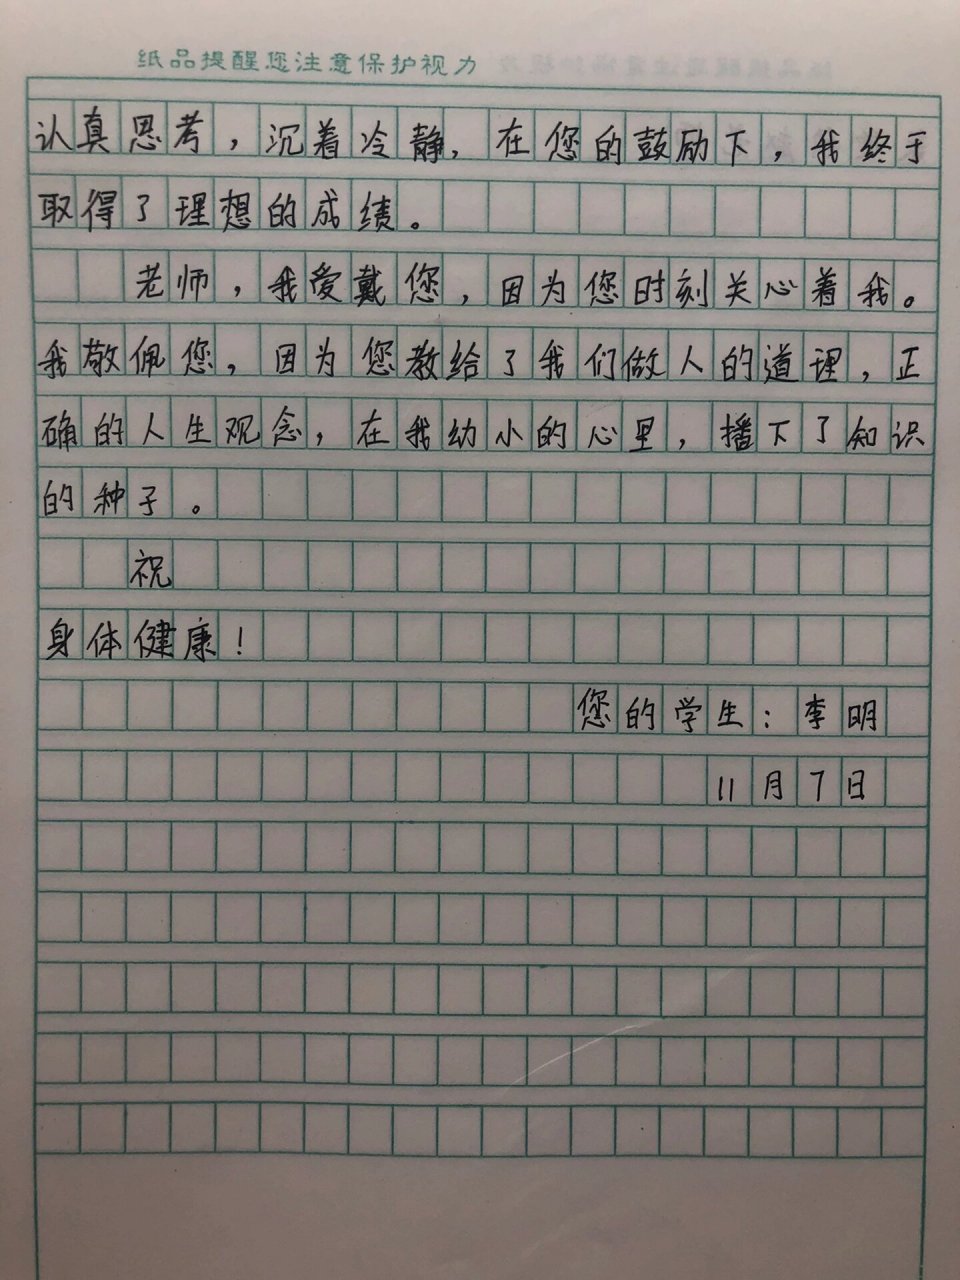 纸品提醒您注意保护视力
认真思考，沉着冷静，在您的鼓励下，我终于
取得了理想的成绩。
老师，我爱戴您，因为您时刻关心着我。
我敬佩您，因为您教给了我们做人的道理，正
确的人生观念，在我幼小的心里，播下了知识
的种子。
祝
身体健康！
您的学生：李明
11月7日